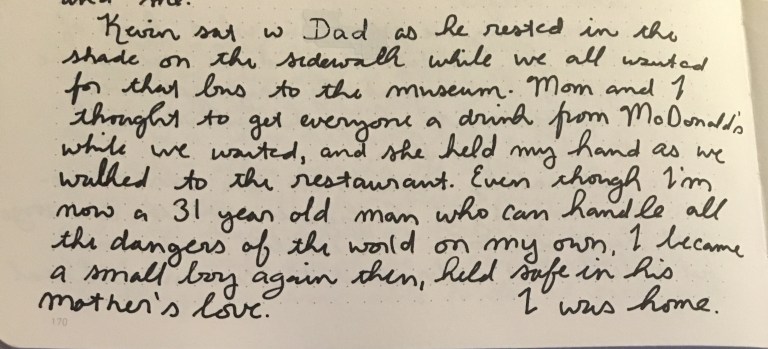 Kevin sat w Dad as he rested in the
shade on the sidewalk while we all waited
for that bus to the museum. Mom and I
thought to get everyone a drink from McDonald's
while we waited, and she held my hand as we
walked to the restaurant. Even though I'm
now a 31 year old man who can handle all
the dangers of the world on my own, I became
a small boy again then, held safe in his
mother's love. I was home.
170